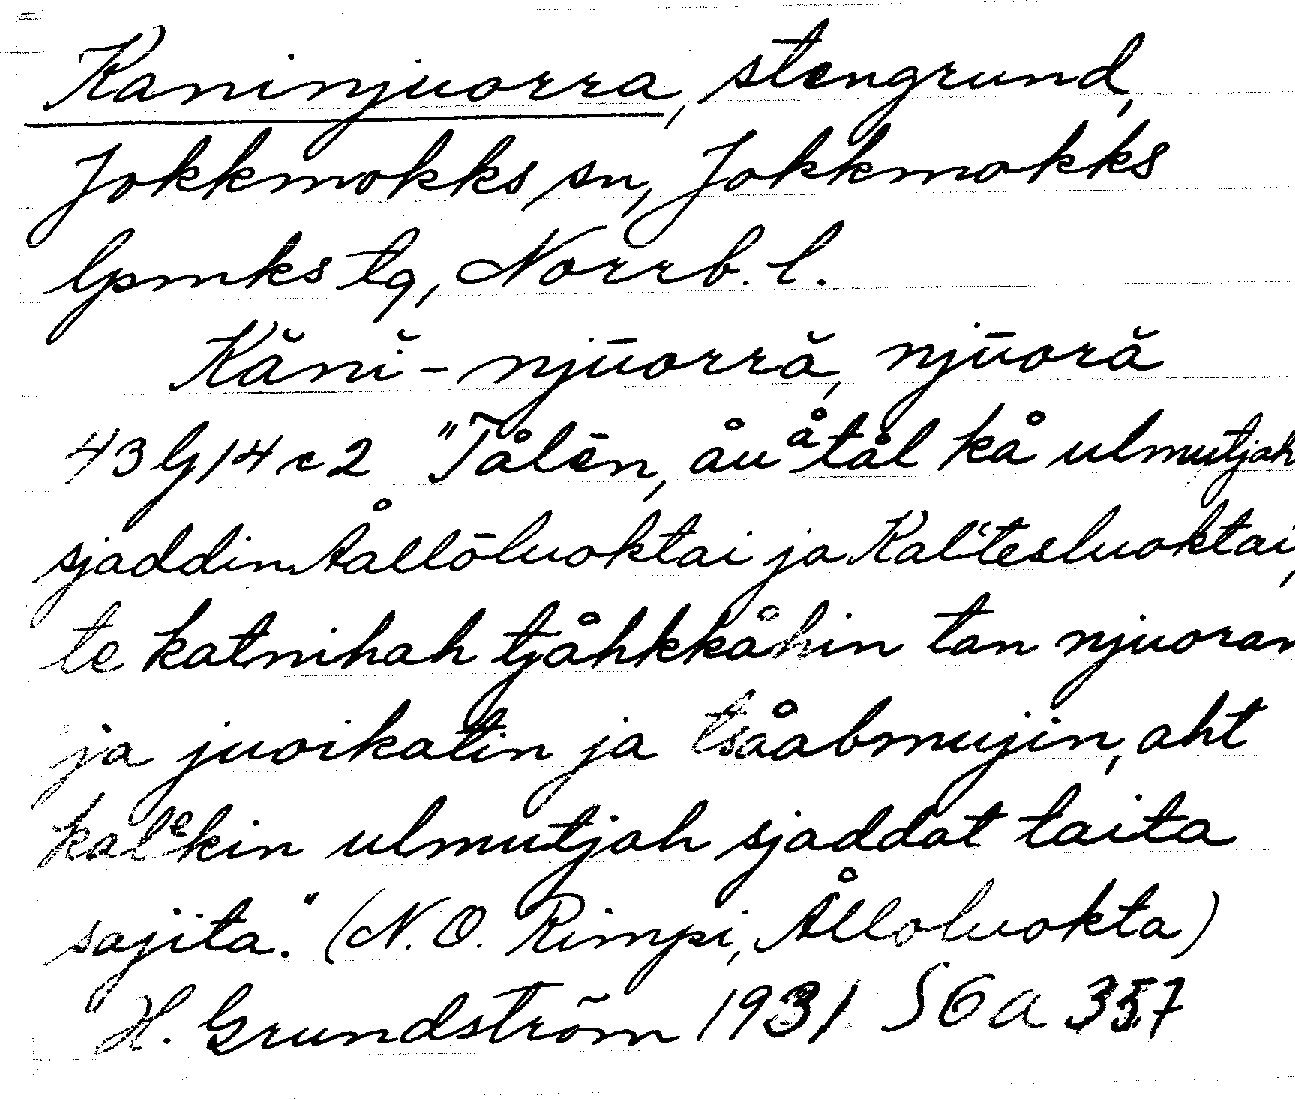 Kaninjuorra, stengrund,
Jokkmokks sn, Jokkmokks
lpmks tg, Norrb. l.
Kănĭ-njūorră, njūoră
43 G 14 c 2 "Tålēn, åu åtål kå ulmutjah
sjaddin Åallōluoktai ja Kal'tesluoktai,
te katnihah tjåhkkåhin tan njuoran
ja juoikatin ja tsåabmujin, aht
kalᵉkin ulmutjah sjaddat taita
sajita." (N. O. Rimpi, Ålloluokta)
H. Grundström 1931 SGa 357